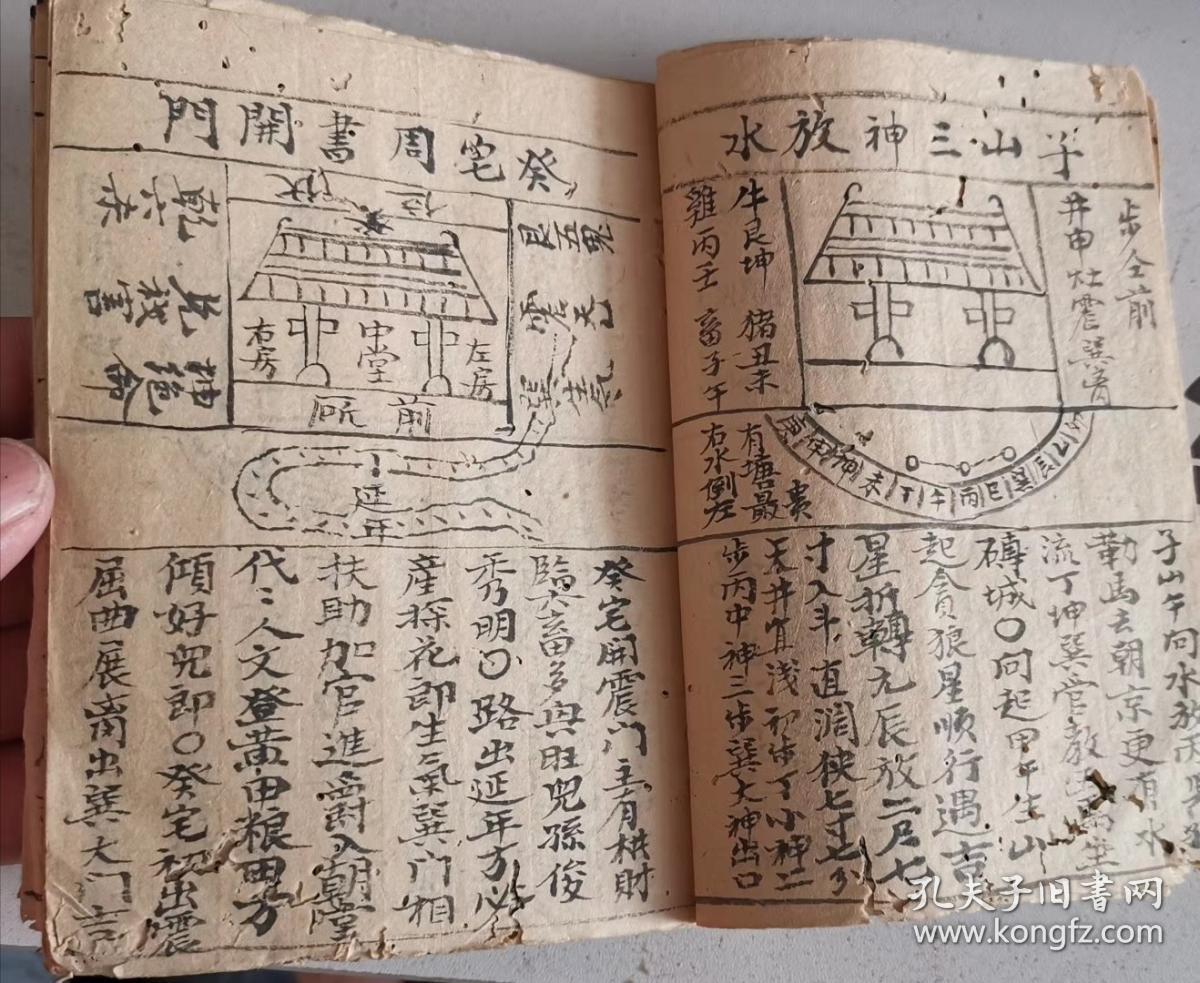 子山三神放水
步全前
井申灶震巽肖
牛艮坤 猪丑未
雞丙壬 畜子午
乙
辰
巽
巳
丙
午
丁
未
坤
申
庚
有塘最貴
右水倒左
子山午向水放
勒馬去朝京更有水
流丁坤巽管教
磚城〇向起甲午生山
起貪狼星順行遇吉
星折轉元辰放二尺七
寸入斗直濶狹七寸七分
天井宜淺初步丁小神二
步丙中神三步巽大神出口
癸宅周書開門
伏位
艮五鬼
震天乙
巽生氣
乾六煞
兌救害
坤絕命
左房
中堂
右房
前所
延年
癸宅開震门主有橫財
臨六畜多興旺兒孫俊
秀明〇路出延年方必
產探花郎生氣巽门相
扶助加官進爵入朝堂
代〻人文登黃甲粮田万
傾好兒郎〇癸宅初出震
屈曲展裔出巽大门吉
孔夫子旧书网
www.kongfz.com